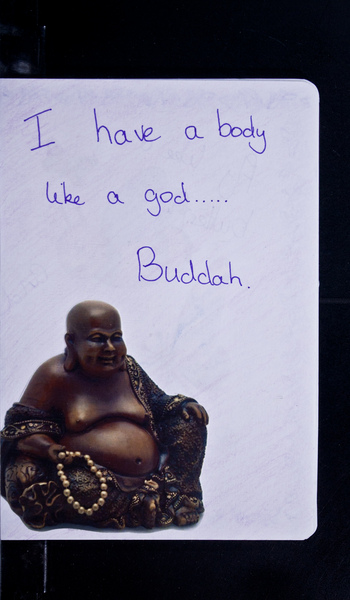 I have a body
like a god.....
Buddah.